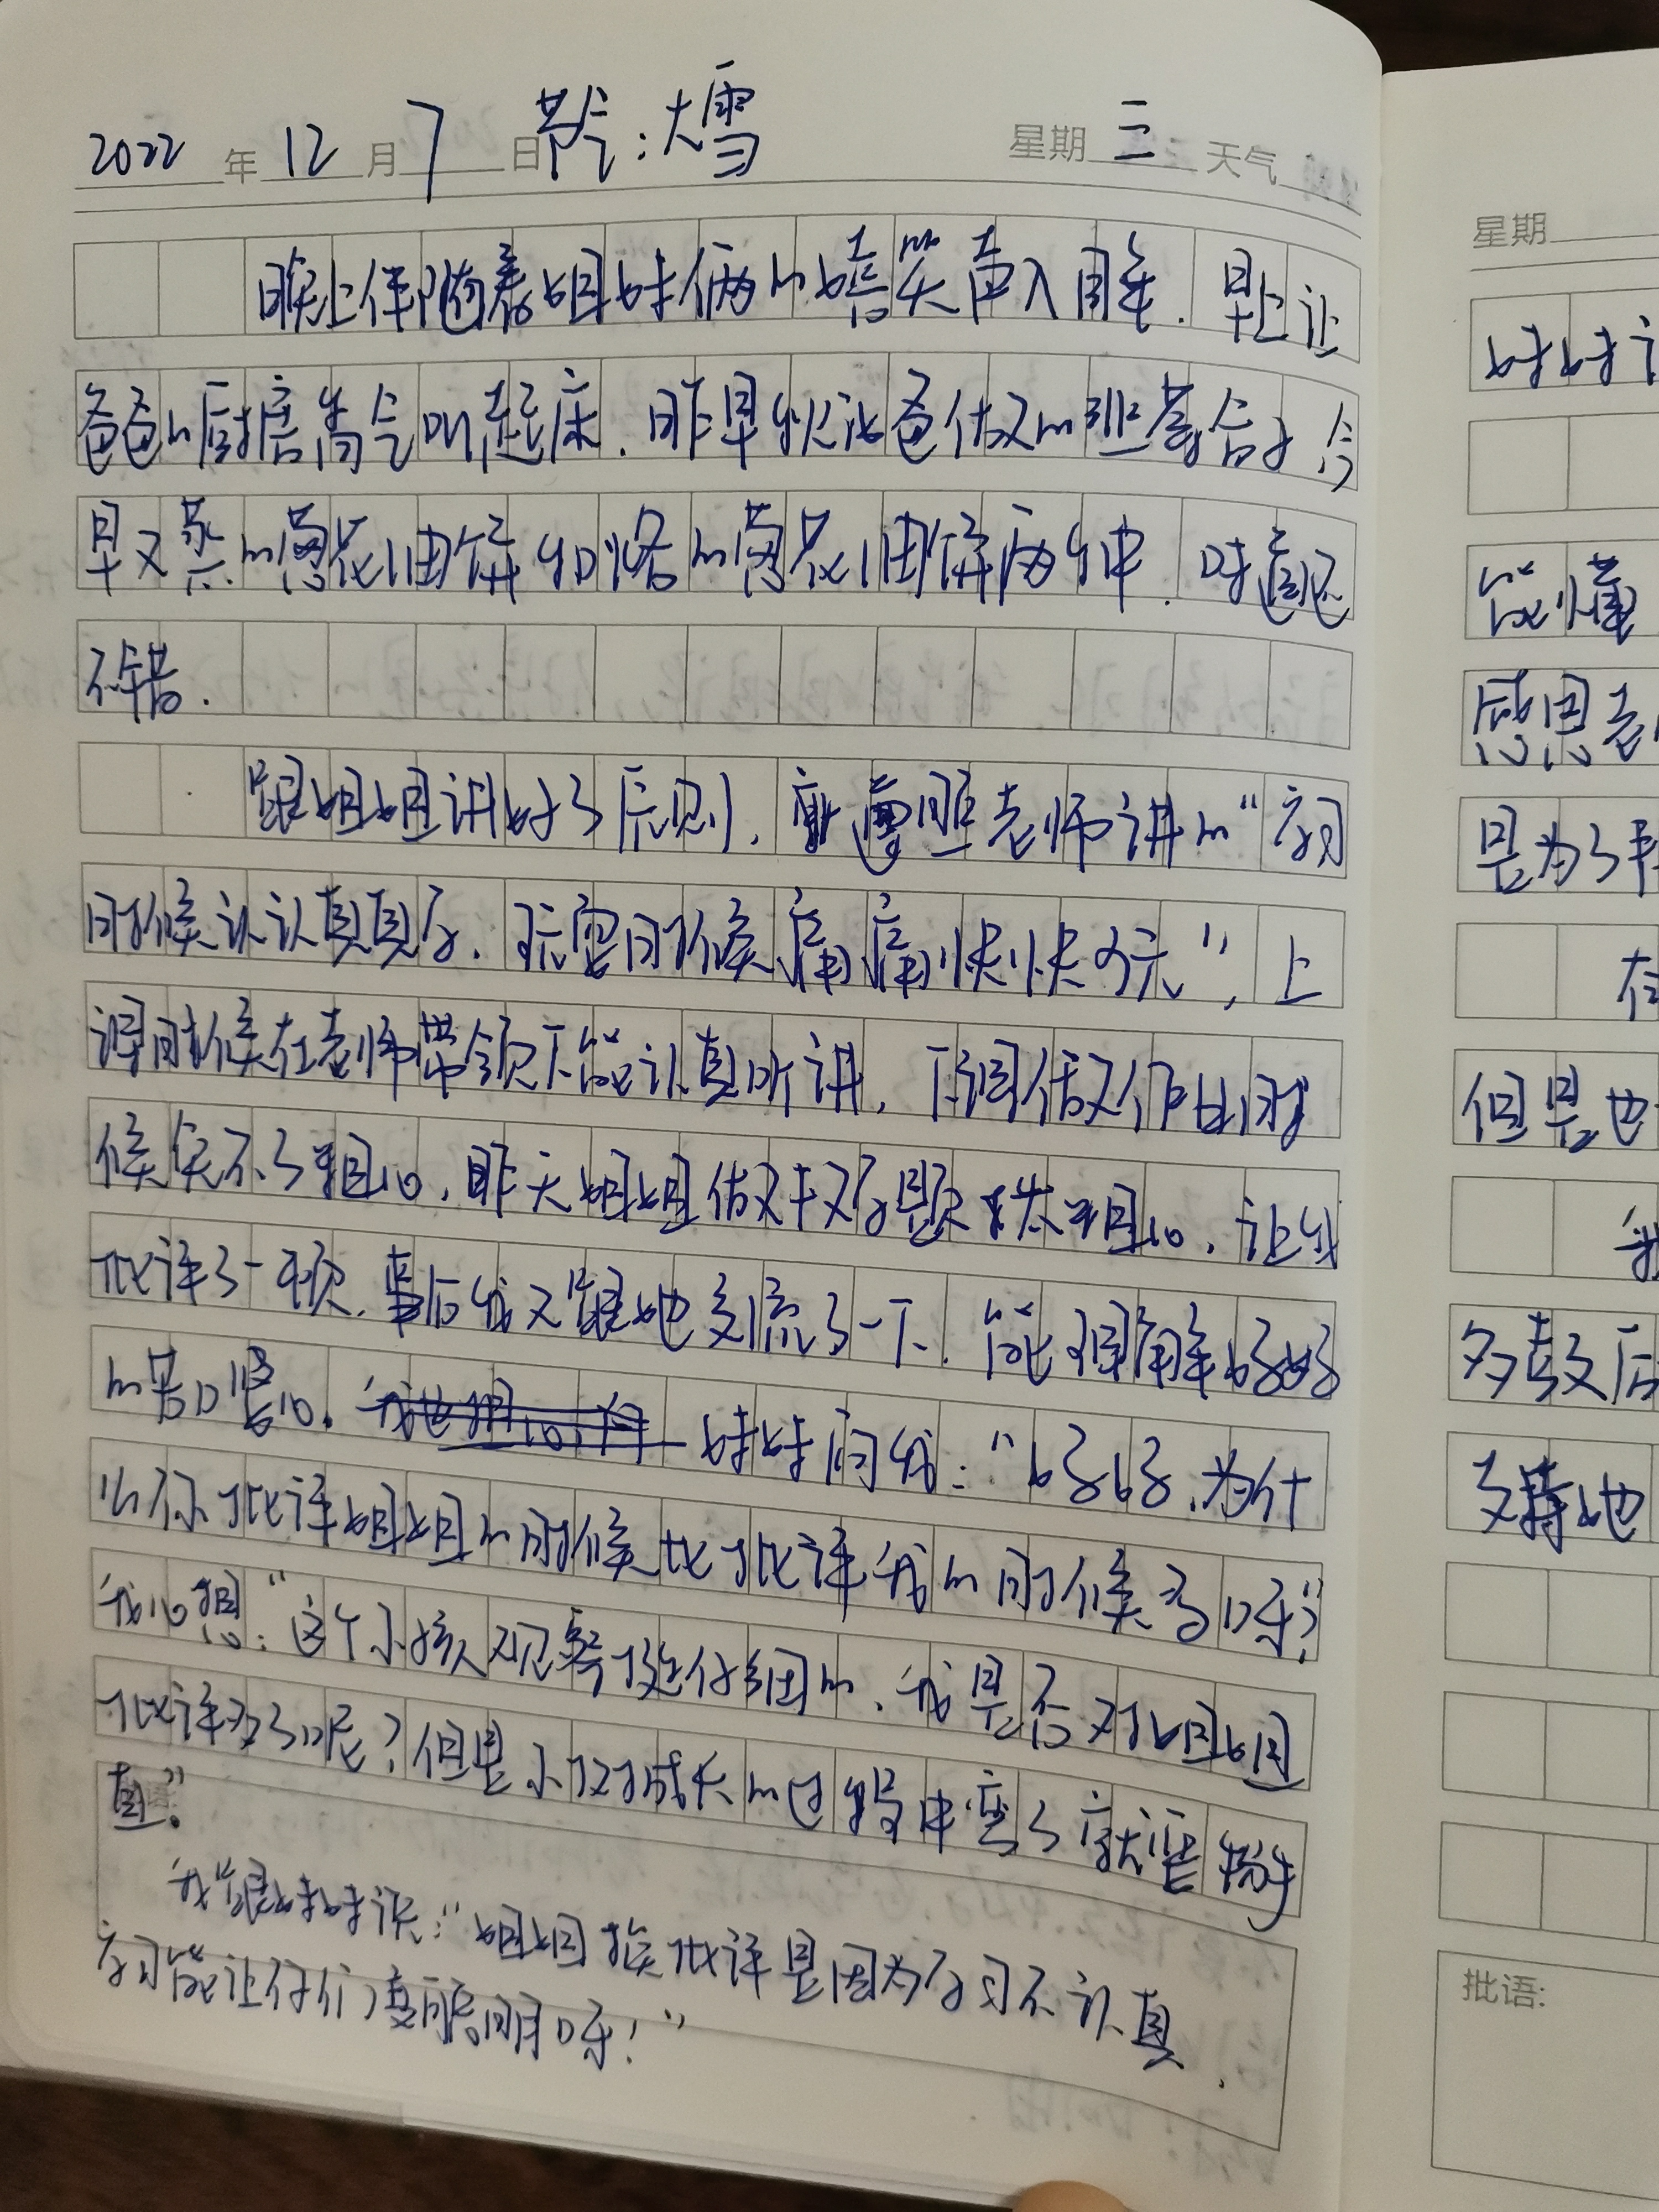 2022年12月7日 节气:大雪 星期三 天气
晚上伴随着姐妹俩的嘻笑声入睡.早上让
爸爸的厨房香气叫起床.昨早吃爸爸做的韭菜合子今
早又蒸的葱花油饼和烙的葱花油饼两种.味道还
不错.
跟姐姐讲好了原则,就遵照老师讲的“学习
时候认认真真学.玩耍时候痛痛快快的玩”,上
课时候在老师带领下能认真听讲,下课做作业的时
候免不了粗心.昨天姐姐做手对学题太粗心.让我
批评了一顿.事后我又跟她交流了一下.能理解妈妈
的苦口婆心. 妹妹问我:“妈妈,为什
么你批评姐姐的时候比批评我的时候多呀?”
我心想:“这个小孩观察挺仔细的.我是否对姐姐
批评多了呢?但是小树成长的过程中弯了就要掰
直.”
我跟妹妹说:“姐姐挨批评是因为学习不认真.
学习能让你们变聪明呀!”
星期
妹妹
能懂
感恩老
是为了
在
但是也
我
多鼓后
支持她
批语: